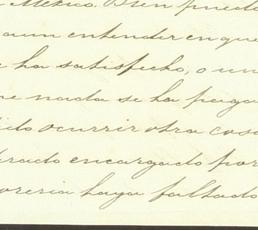 Mexico. Bien puede
aun entender en que
ha satisfecho, o un
nada se ha paga
ido ocurrir otra cosa
trado encargado por
oreria haya faltado